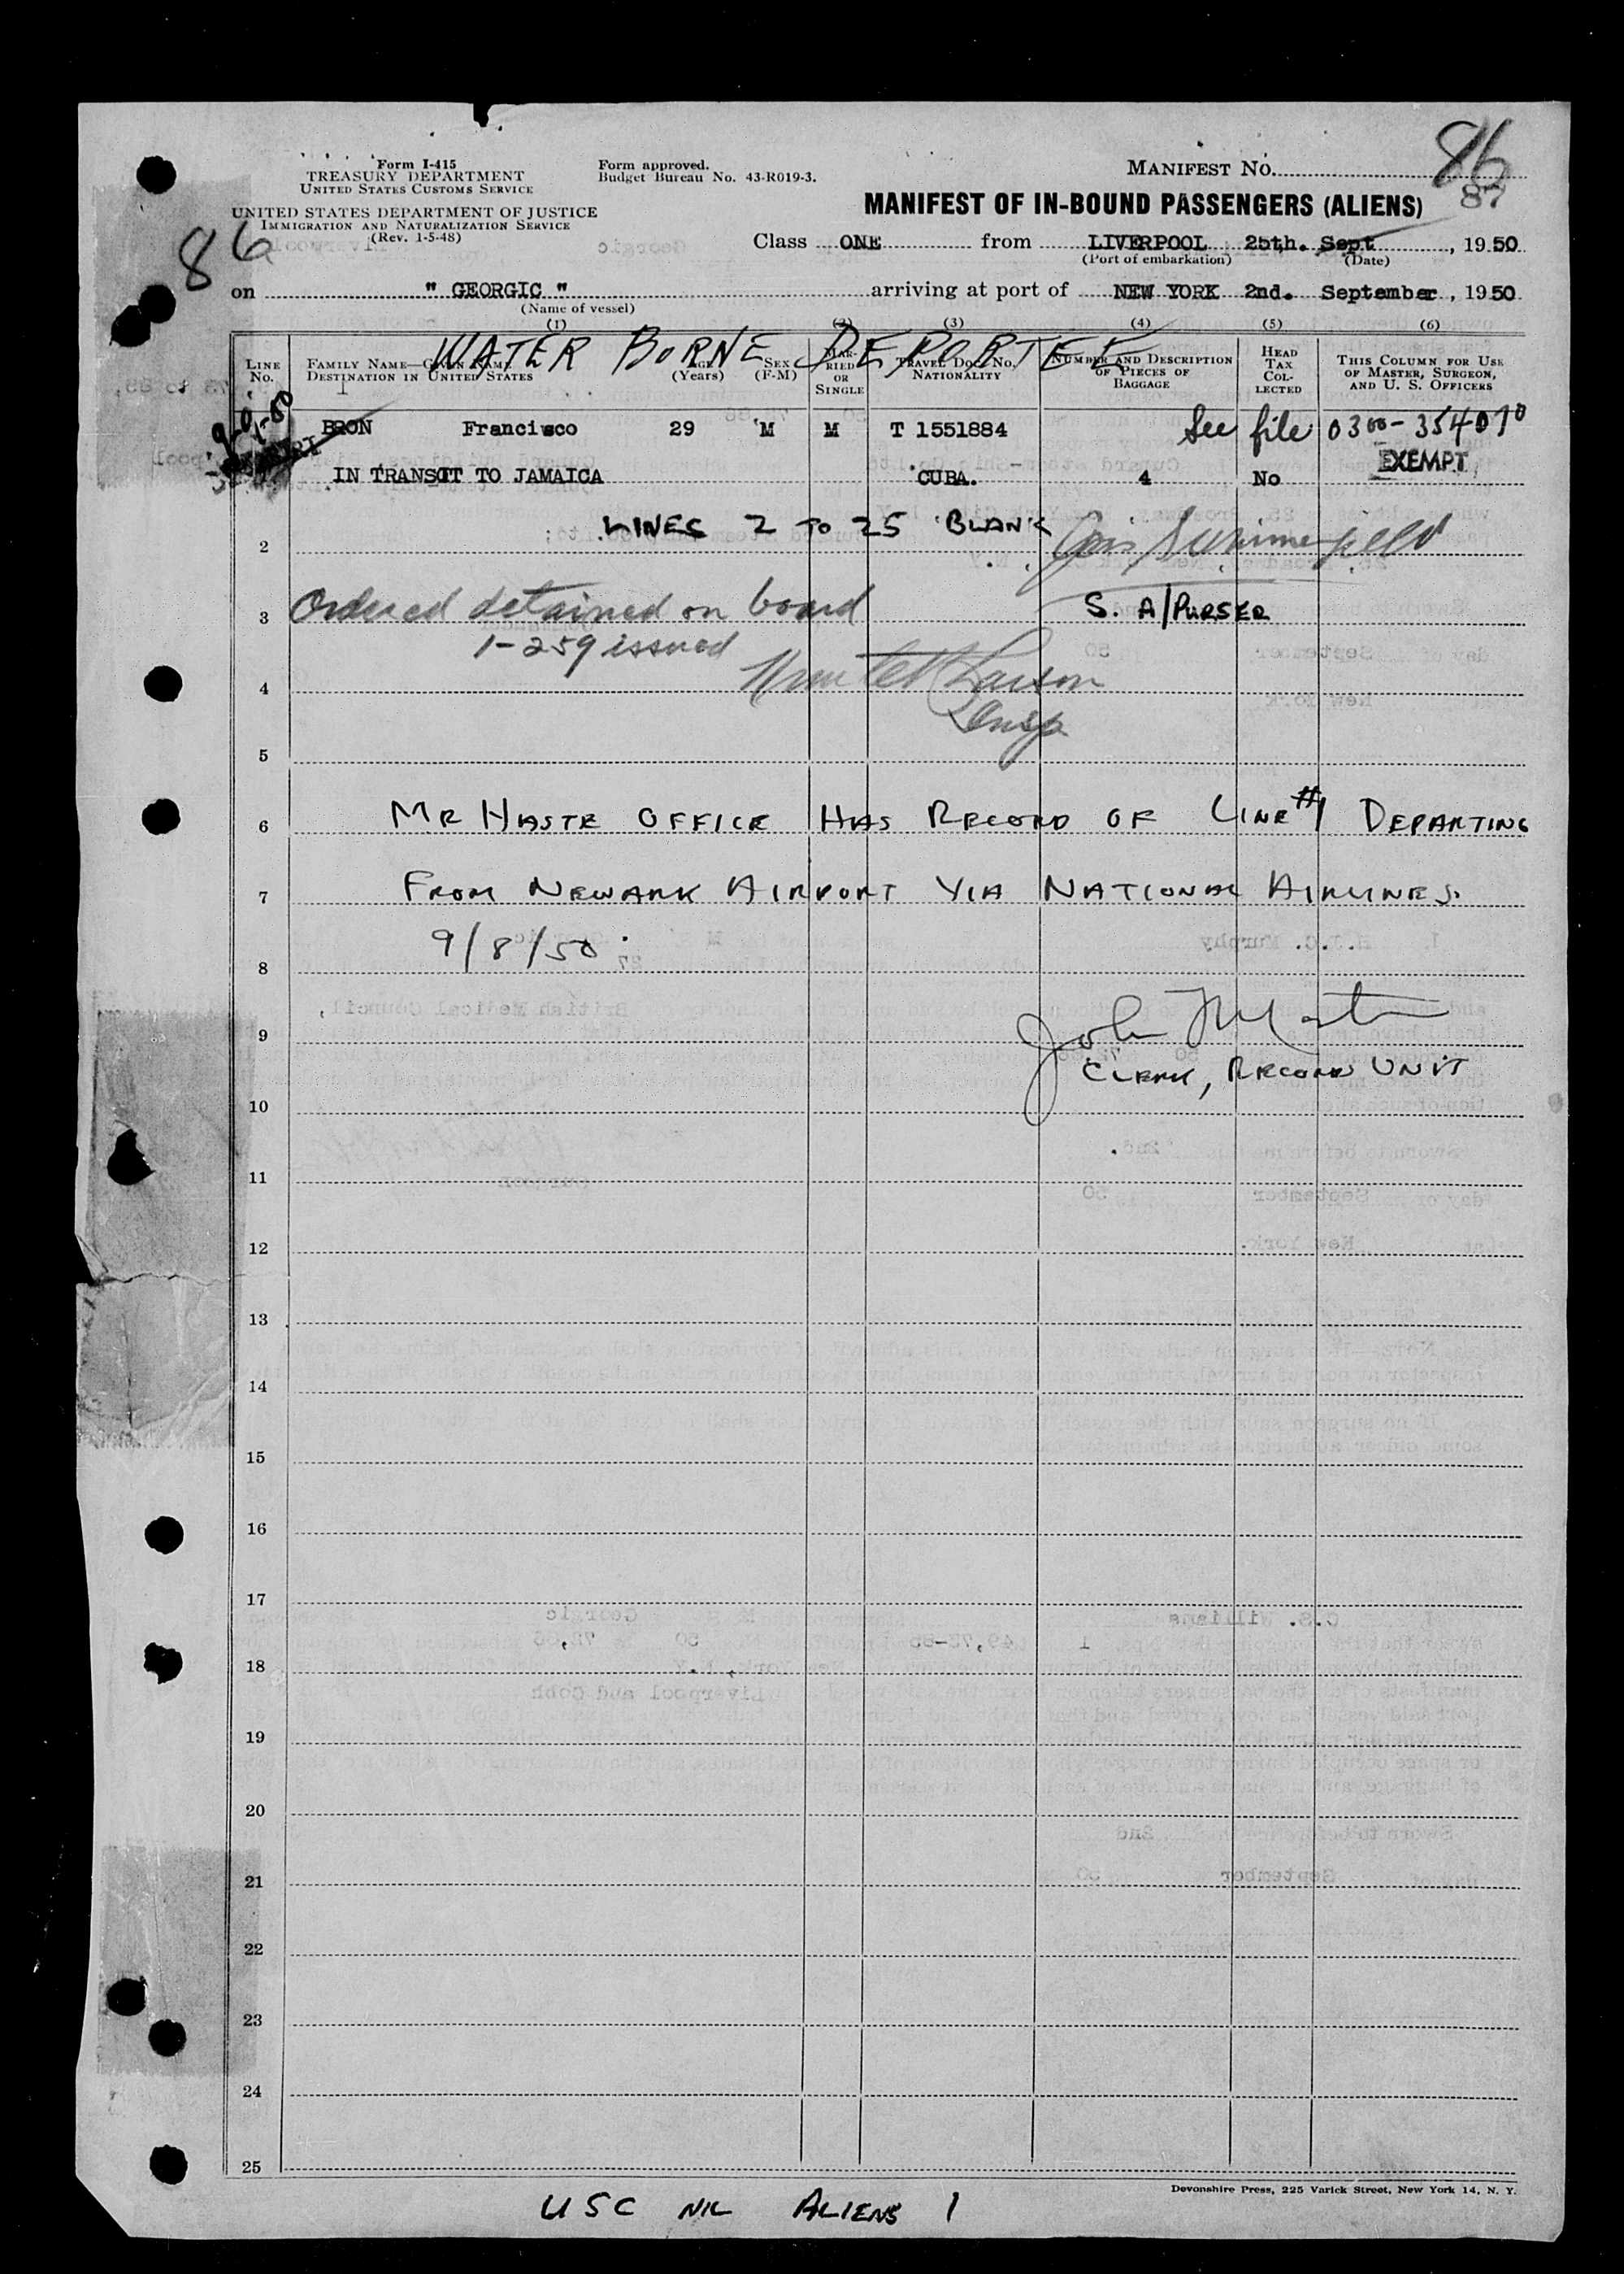 Form I-415
TREASURY DEPARTMENT
UNITED STATES CUSTOMS SERVICE
Form approved.
Budget Bureau No. 43-R019-3.
MANIFEST NO. 86
87
UNITED STATES DEPARTMENT OF JUSTICE
IMMIGRATION AND NATURALIZATION SERVICE
(Rev. 1-5-48)
MANIFEST OF IN-BOUND PASSENGERS (ALIENS)
86
Class ONE from LIVERPOOL 25th. Sept, 1950
(Port of embarkation) (Date)
on " GEORGIC " arriving at port of NEW YORK 2nd. September, 1950
(Name of vessel)
(1) (2) (3) (4) (5) (6)
WATER BORNE DEPORTEE
LINE No.
FAMILY NAME—GIVEN NAME
DESTINATION IN UNITED STATES
AGE (Years)
SEX (F-M)
MARRIED OR SINGLE
TRAVEL DOC. NO.
NATIONALITY
NUMBER AND DESCRIPTION OF PIECES OF BAGGAGE
HEAD TAX COLLECTED
THIS COLUMN FOR USE OF MASTER, SURGEON, AND U. S. OFFICERS
BRON Francisco 29 M M T 1551884 See file 0300-354070
EXEMPT
IN TRANSIT TO JAMAICA CUBA. 4 No
LINES 2 TO 25 BLANK
2
3 Ordered detained on board S. A/PURSER
1-259 issued
4 Larson
Insp
5
6 MR HASTE OFFICE HAS RECORD OF LINE #1 DEPARTING
7 FROM NEWARK AIRPORT VIA NATIONAL AIRLINES.
9/8/50
8
9 John Martin
CLERK, RECORD UNIT
10
11
12
13
14
15
16
17
18
19
20
21
22
23
24
25
Devonshire Press, 225 Varick Street, New York 14, N. Y.
USC NIL ALIENS 1